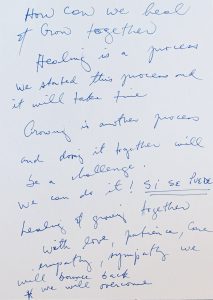 How can we heal
& Grow together
Healing is a process
we started this process and
it will take time
Growing is another process
and doing it together will
be a challenge.
We can do it! SI SE PUEDE
healing & growing together
With love, patience, care
, empathy, sympathy we
will bounce back
* we will overcome